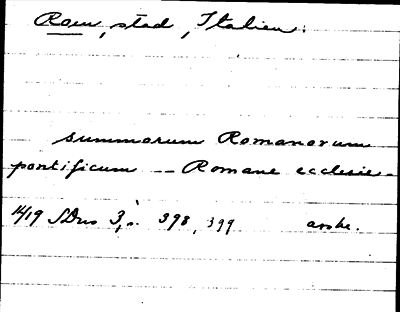 Rom, stad, Italien.
summorum Romanorum
pontificum -- Romane ecclesie -
1419 SDns 3, s. 398, 399 avskr.